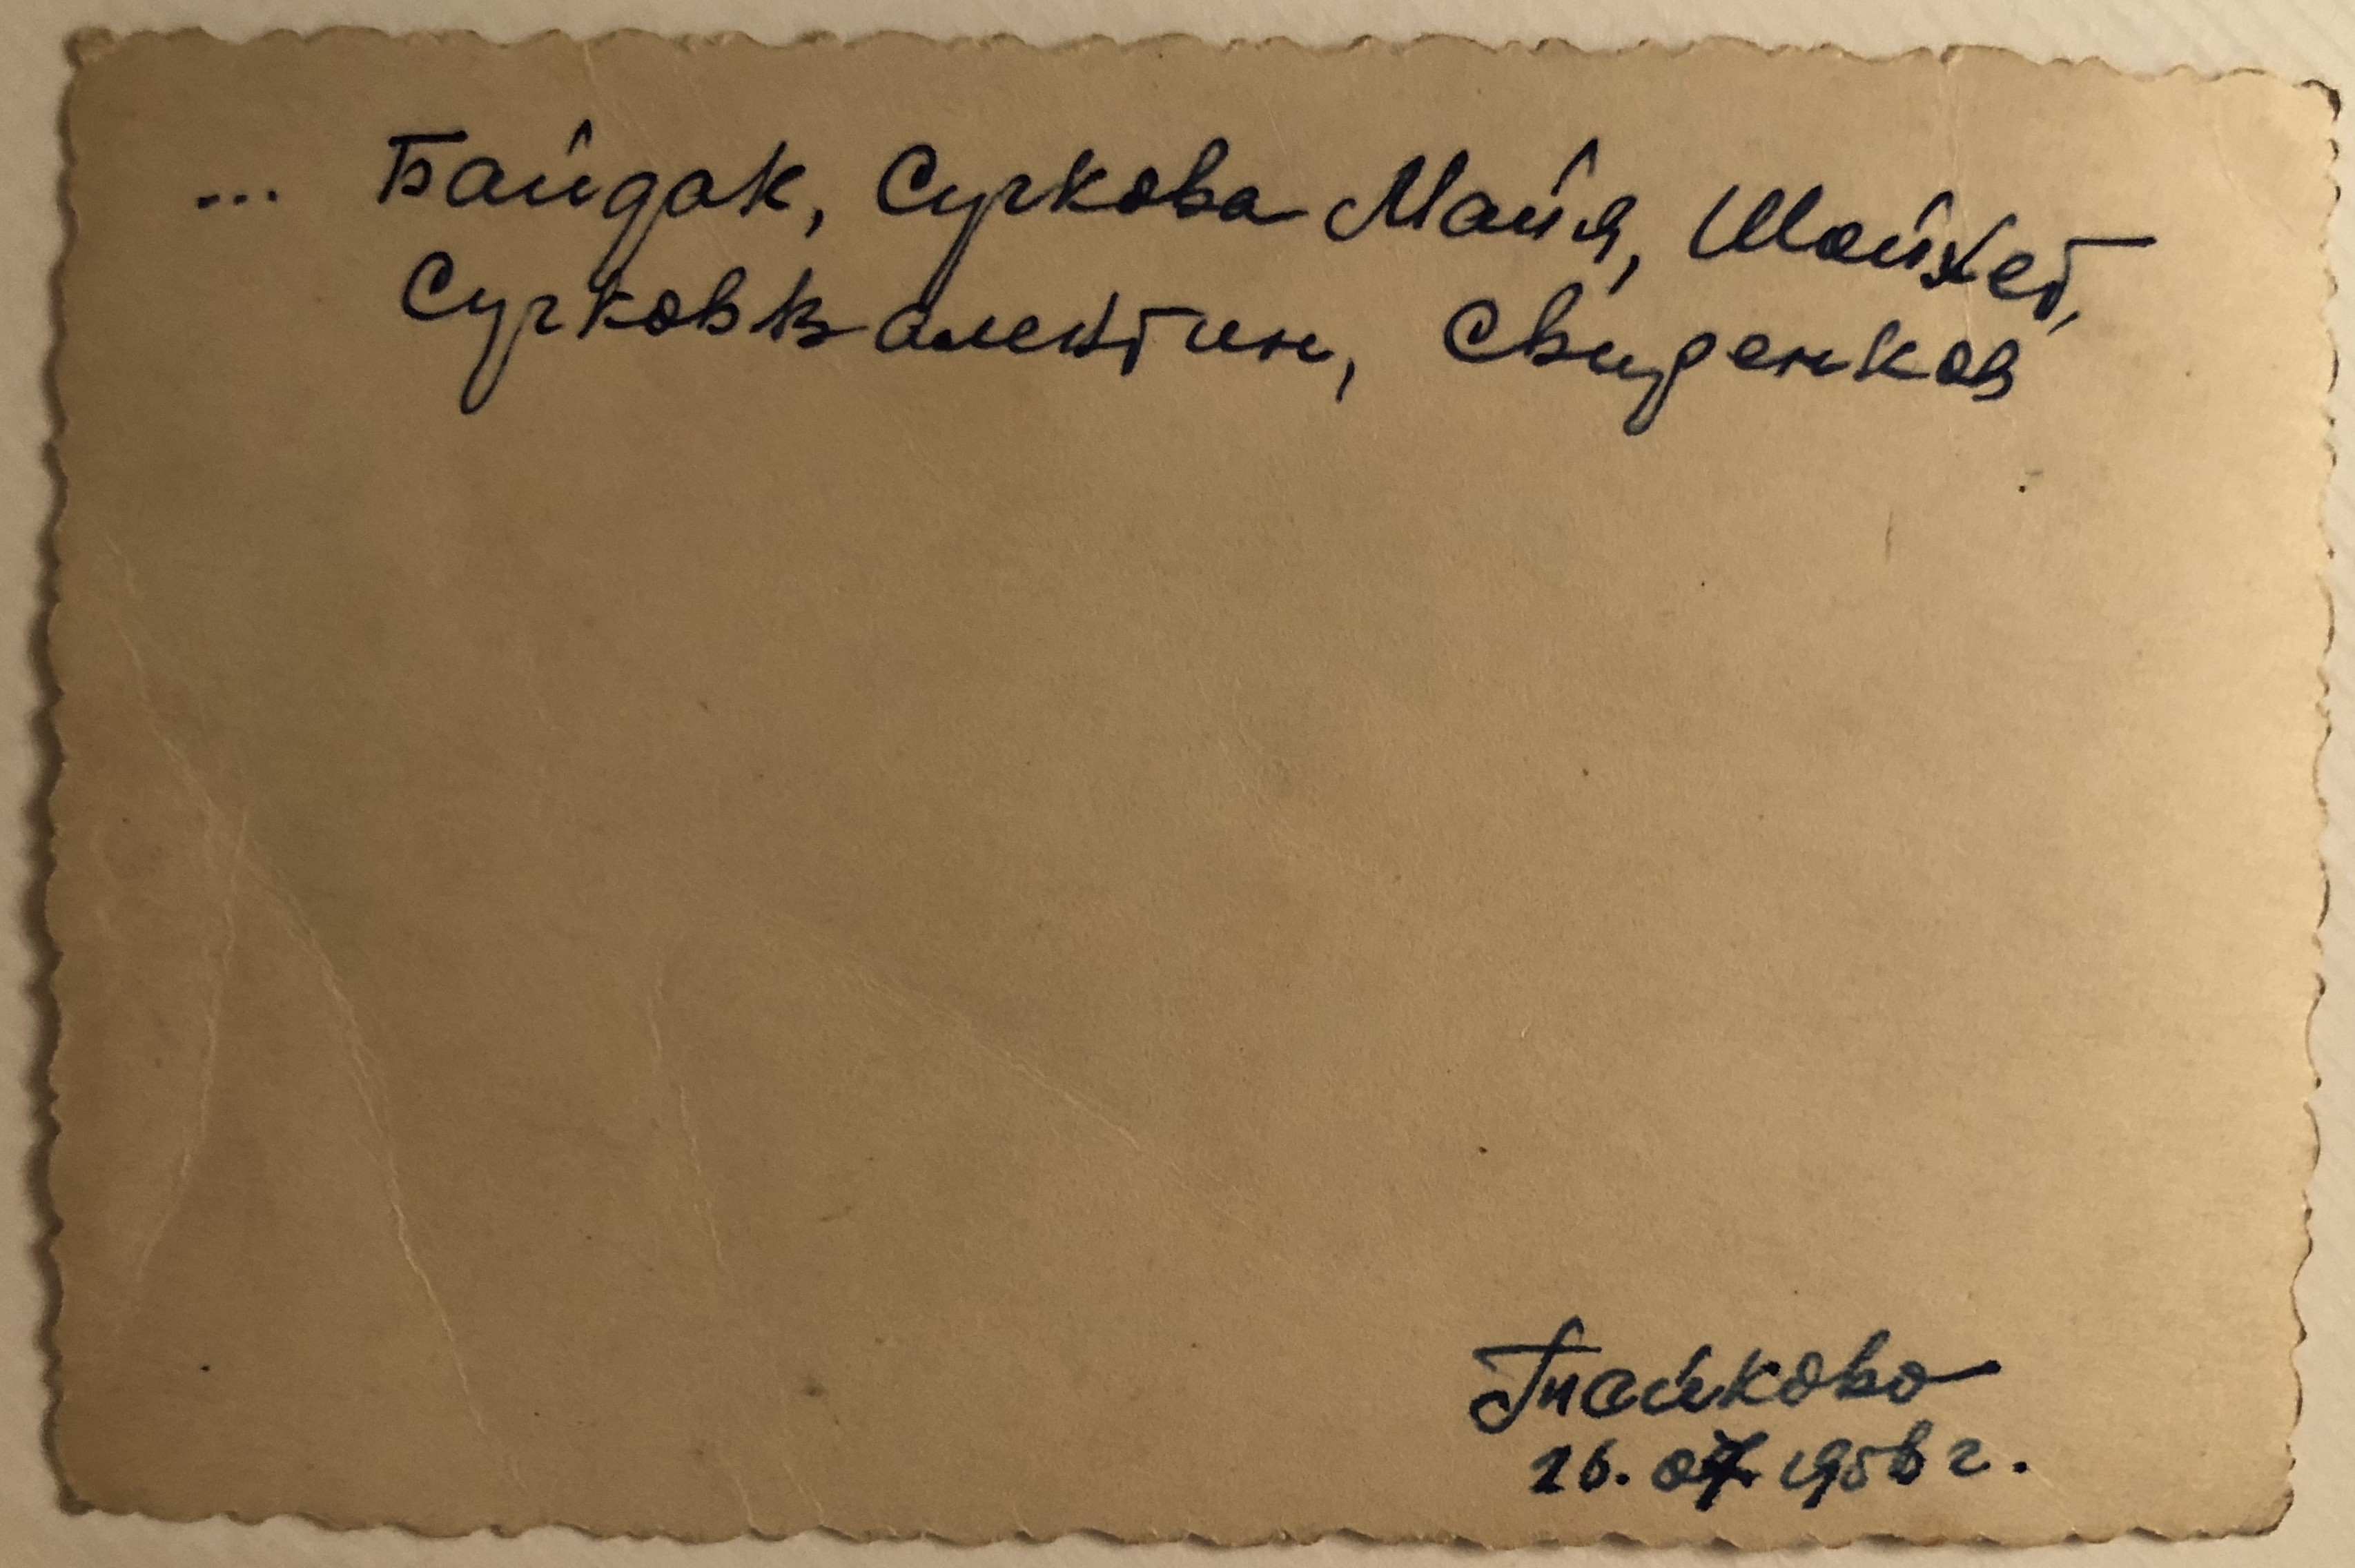 ... Байдак, Суркова Майя, Шайхет,
Сурков Валентин, Свиденков
26.07 1956 г.